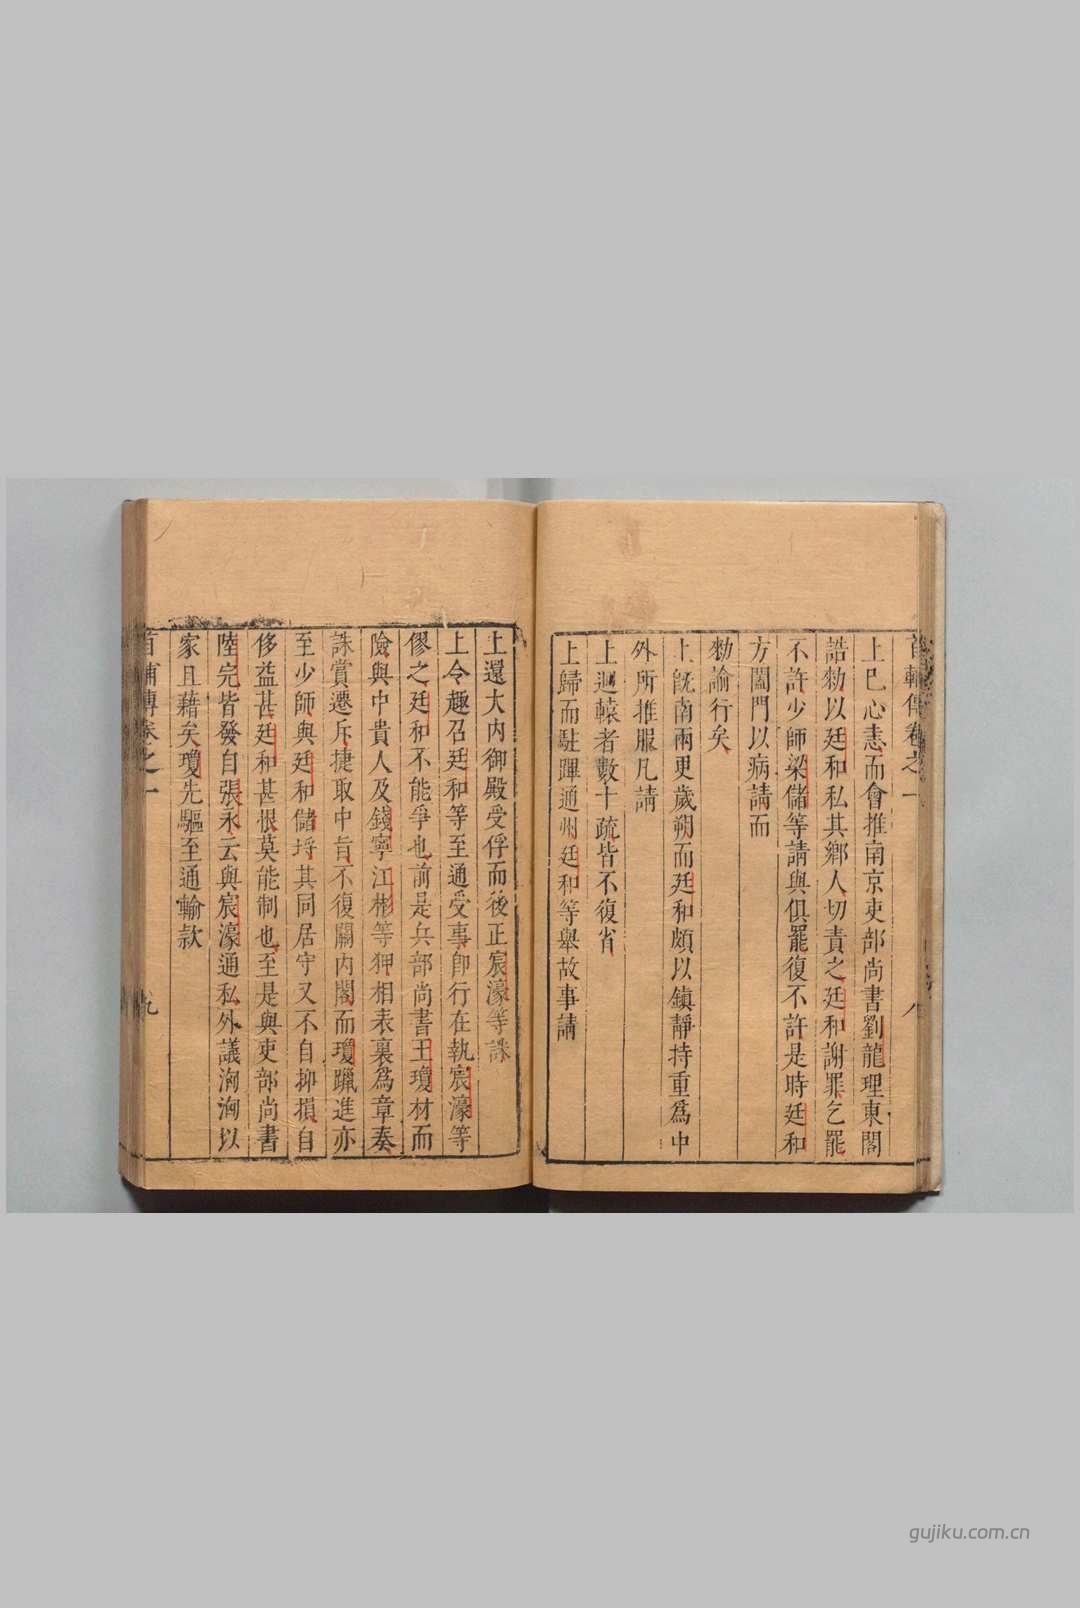 上已心恚而會推南京吏部尚書劉龍理東閣
誥勑以廷和私其鄉人切責之廷和謝罪乞罷
不許少師梁儲等請與俱罷復不許是時廷和
方闔門以病請而
勑諭行矣
上旣南兩更歲朔而廷和頗以鎮靜持重爲中
外所推服凡請
上迴轅者數十疏皆不復省
上歸而駐蹕通州廷和等舉故事請
上還大內御殿受俘而後正宸濠等誅
上令趣召廷和等至通受事卽行在執宸濠等
僇之廷和不能爭也前是兵部尚書王瓊材而
險與中貴人及錢寧江彬等狎相表裏爲章奏
誅賞遷斥捷取中旨不復關內閣而瓊躐進亦
至少師與廷和儲埒其同居守又不自抑損自
侈益甚廷和甚恨莫能制也至是與吏部尚書
陸完皆發自張永云與宸濠通私外議洶洶以
家且藉矣瓊先驅至通輸款
首輔傳卷之一
九
gujiku.com.cn